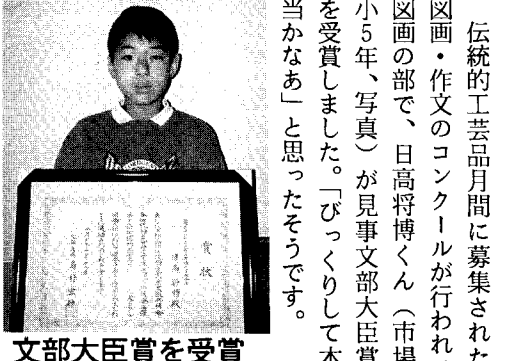 伝統的工芸品月間に募集された
図画・作文のコンクールが行われ、
図画の部で、日高将博くん（市場
小5年、写真）が見事文部大臣賞
を受賞しました。「びっくりして本
当かなあ」と思ったそうです。
賞状
文部大臣賞を受賞